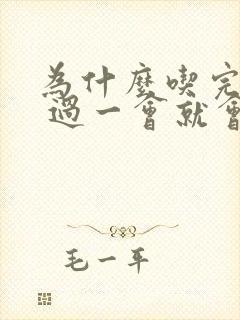 為什麼喫完
過一會就會
毛一平